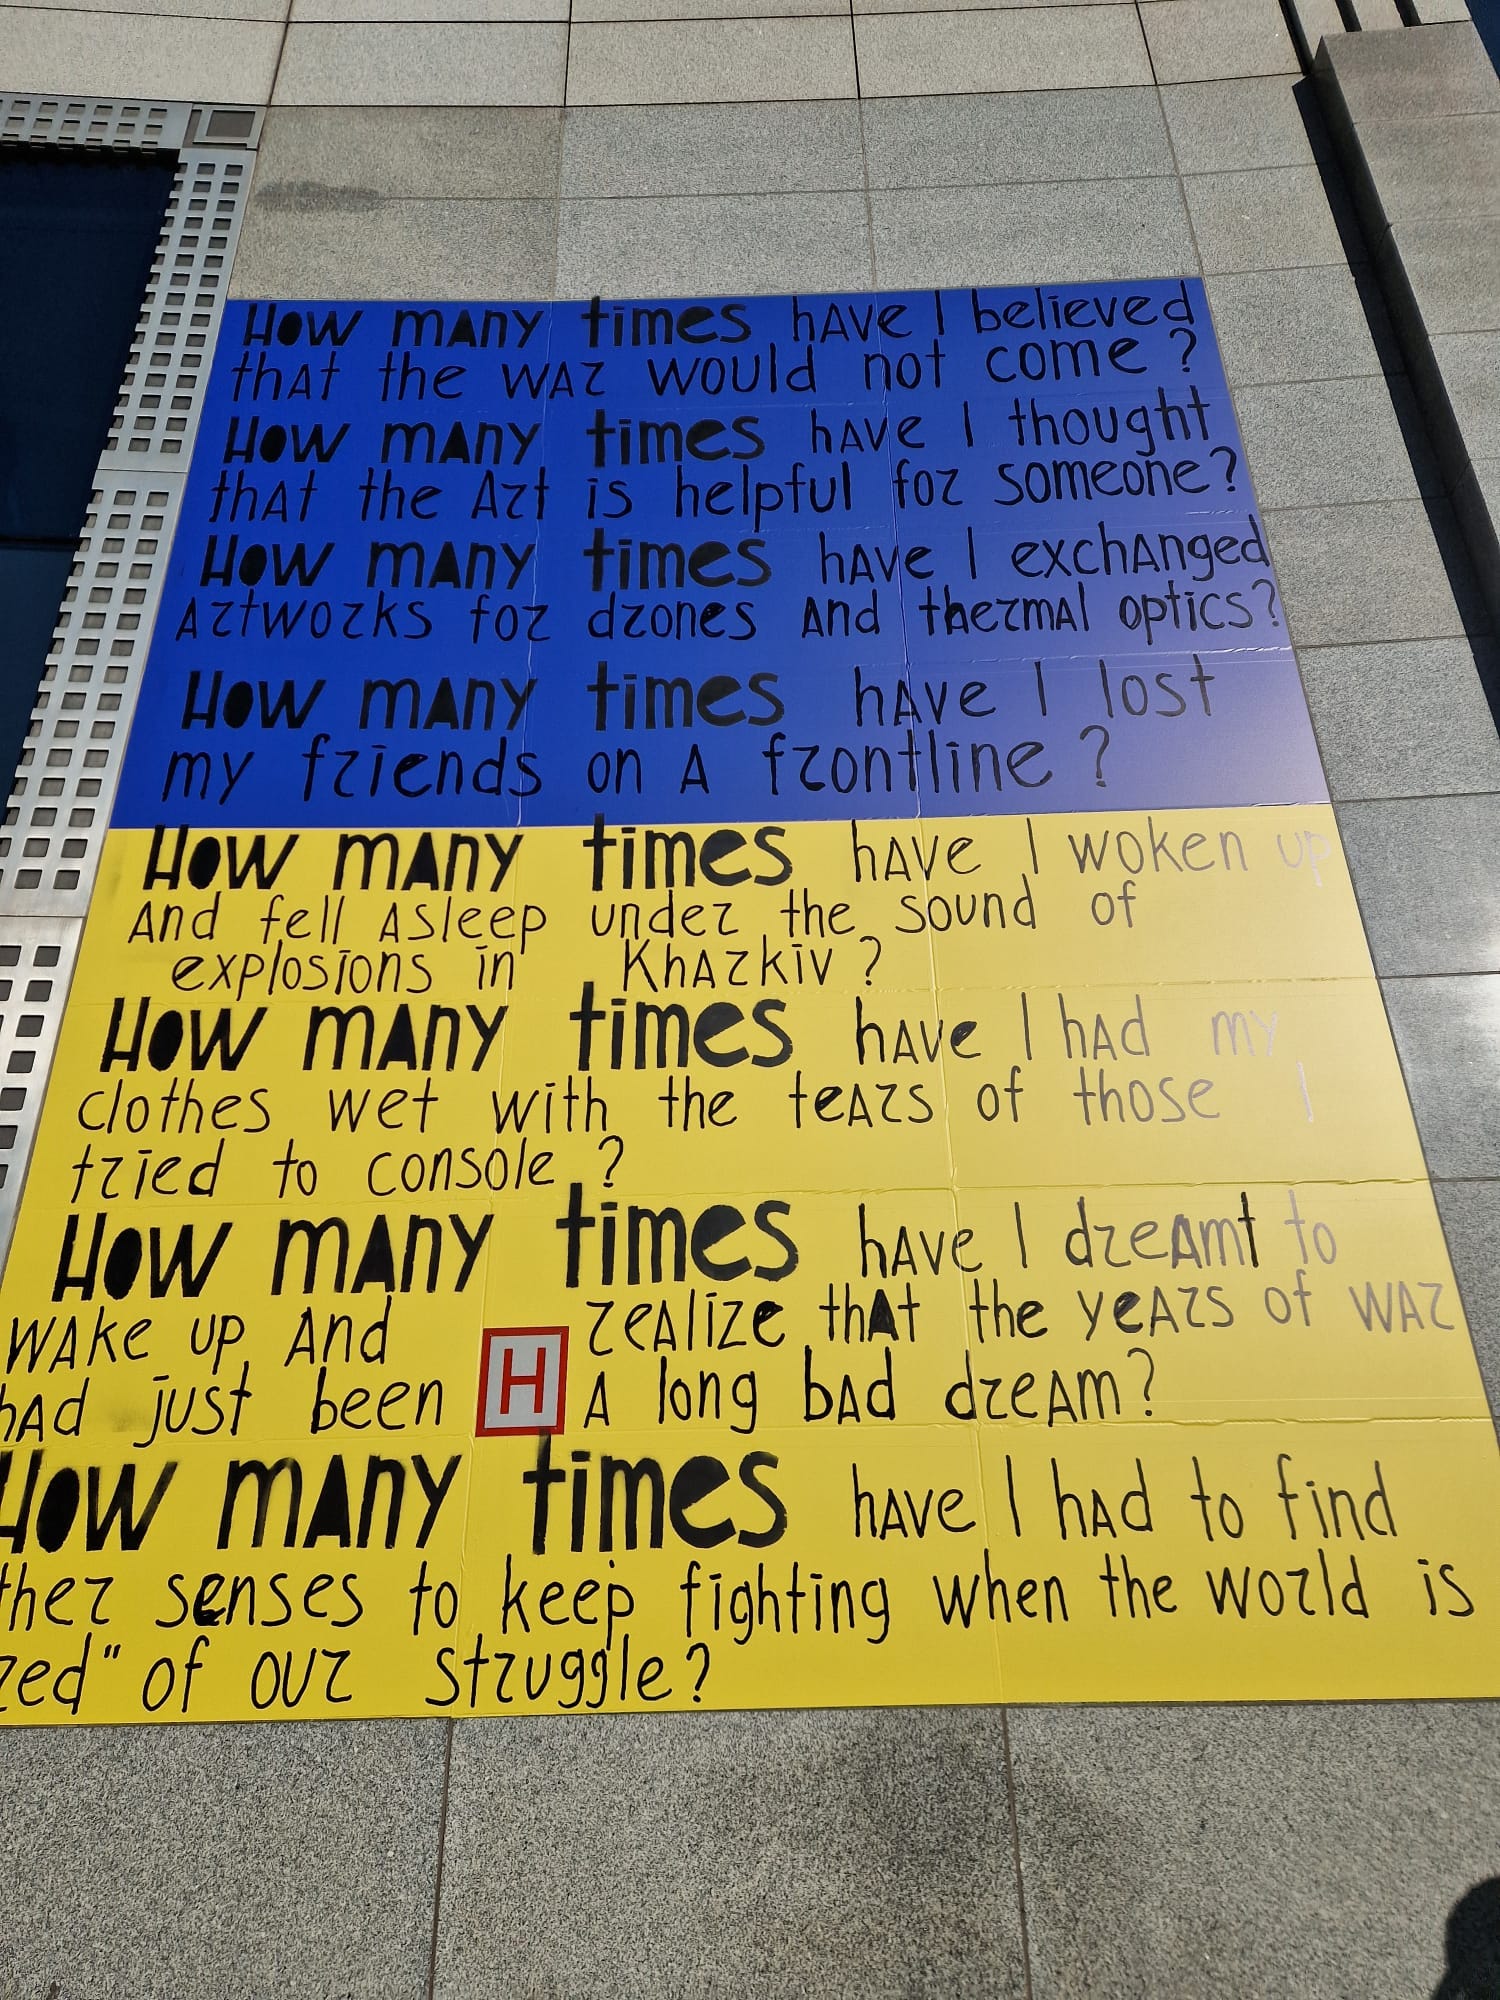 How many times have I believed
that the war would not come?
How many times have I thought
that the Art is helpful for someone?
How many times have I exchanged
artworks for drones and thermal optics?
How many times have I lost
my friends on a frontline?
How many times have I woken up
and fell asleep under the sound of
explosions in Kharkiv?
How many times have I had my
clothes wet with the tears of those I
tried to console?
How many times have I dreamt to
wake up and realize that the years of war
had just been a long bad dream?
H
How many times have I had to find
senses to keep fighting when the world is
of our struggle?